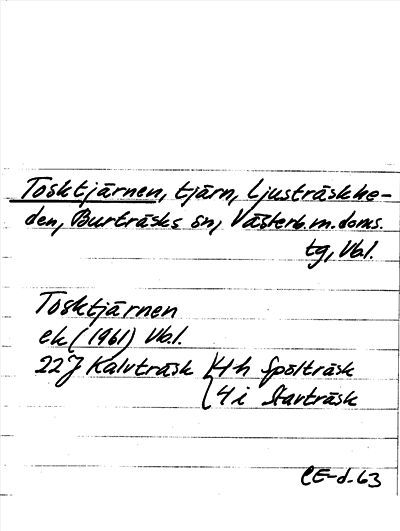 Tosktjärnen, tjärn, Ljusträskhe-
den, Burträsks sn, Västerb. m. doms.
tg, Vbl.
Tosktjärnen
ek (1961) Vb.l.
22 J Kalvträsk 4 h Spölträsk
4 i Starträsk
CE-d-63